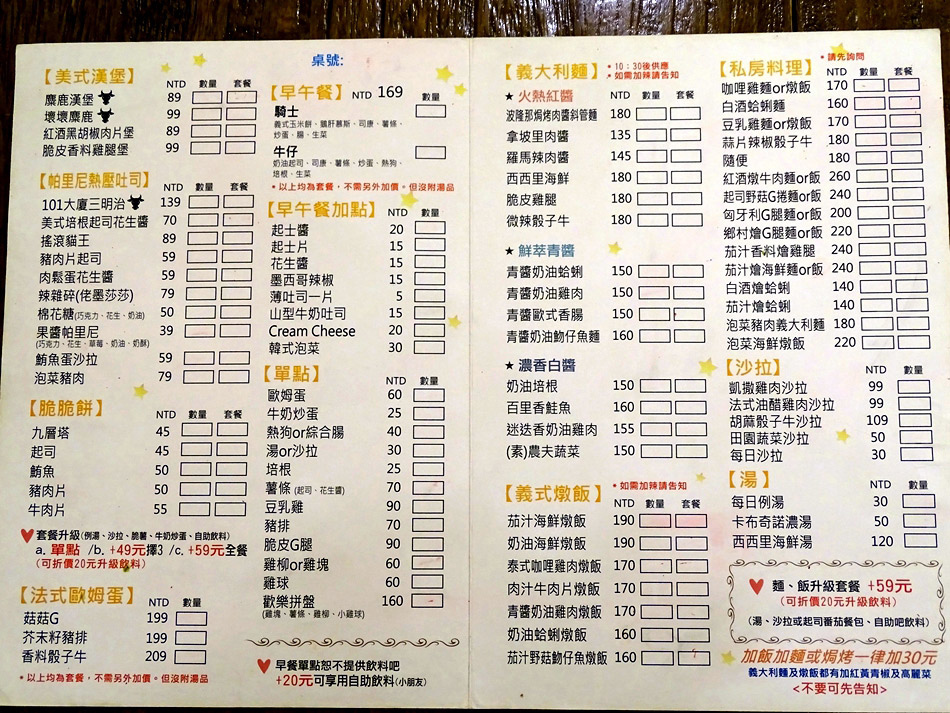 桌號:
【美式漢堡】
NTD 數量 套餐
麋鹿漢堡 89
壞壞麋鹿 99
紅酒黑胡椒肉片堡 89
脆皮香料雞腿堡 99
【帕里尼熱壓吐司】
NTD 數量 套餐
101大廈三明治 139
美式培根起司花生醬 70
搖滾貓王 89
豬肉片起司 59
肉鬆蛋花生醬 59
辣雜碎(佬墨莎莎) 79
棉花糖(巧克力、花生、奶油) 50
果醬帕里尼 39
(巧克力、花生、草莓、奶油、奶酥)
鮪魚蛋沙拉 59
泡菜豬肉 79
【脆脆餅】
NTD 數量 套餐
九層塔 45
起司 45
鮪魚 50
豬肉片 50
牛肉片 55
套餐升級(例湯、沙拉、脆薯、牛奶炒蛋、自助飲料)
a. 單點 /b. +49元擇3 /c. +59元全餐
(可折價20元升級飲料)
【法式歐姆蛋】
NTD 數量
菇菇G 199
芥末籽豬排 199
香料骰子牛 209
*以上均為套餐，不需另外加價。但沒附湯品
【早午餐】 NTD 169 數量
騎士
義式玉米餅、鵝肝慕斯、司康、薯條、
炒蛋、腸、生菜
牛仔
奶油起司、司康、薯條、炒蛋、熱狗、
培根、生菜
*以上均為套餐，不需另外加價。但沒附湯品
【早午餐加點】
NTD 數量
起士醬 20
起士片 15
花生醬 15
墨西哥辣椒 15
薄吐司一片 5
山型牛奶吐司 15
Cream Cheese 20
韓式泡菜 30
【單點】
NTD 數量
歐姆蛋 60
牛奶炒蛋 25
熱狗or綜合腸 40
湯or沙拉 30
培根 25
薯條 (起司、花生醬) 70
豆乳雞 90
豬排 70
脆皮G腿 90
雞柳or雞塊 60
雞球 60
歡樂拼盤 160
(雞塊、薯條、雞柳、小雞球)
早餐單點恕不提供飲料吧
+20元可享用自助飲料(小朋友)
【義大利麵】
*10：30後供應
*如需加辣請告知
★ 火熱紅醬 NTD 數量 套餐
波隆那焗烤肉醬斜管麵 180
拿坡里肉醬 135
羅馬辣肉醬 145
西西里海鮮 180
脆皮雞腿 180
微辣骰子牛 180
★ 鮮萃青醬
青醬奶油蛤蜊 150
青醬奶油雞肉 150
青醬歐式香腸 150
青醬奶油魩仔魚麵 160
★ 濃香白醬
奶油培根 150
百里香鮭魚 160
迷迭香奶油雞肉 155
(素)農夫蔬菜 150
【義式燉飯】
*如需加辣請告知
NTD 數量 套餐
茄汁海鮮燉飯 190
奶油海鮮燉飯 190
泰式咖哩雞肉燉飯 170
肉汁牛肉片燉飯 170
青醬奶油雞肉燉飯 170
奶油蛤蜊燉飯 160
茄汁野菇魩仔魚燉飯 160
【私房料理】
*請先詢問
NTD 數量 套餐
咖哩雞麵or燉飯 170
白酒蛤蜊麵 160
豆乳雞麵or燉飯 170
蒜片辣椒骰子牛 180
隨便 180
紅酒燉牛肉麵or飯 260
起司野菇G捲麵or飯 240
匈牙利G腿麵or飯 200
鄉村燴G腿麵or飯 220
茄汁香料燴雞腿 240
茄汁燴海鮮麵or飯 240
白酒燴蛤蜊 140
茄汁燴蛤蜊 140
泡菜豬肉義大利麵 180
泡菜海鮮燉飯 220
【沙拉】
NTD 數量
凱撒雞肉沙拉 99
法式油醋雞肉沙拉 99
胡蔴骰子牛沙拉 109
田園蔬菜沙拉 50
每日沙拉 30
【湯】
NTD 數量
每日例湯 30
卡布奇諾濃湯 50
西西里海鮮湯 120
麵、飯升級套餐 +59元
(可折價20元升級飲料)
(湯、沙拉或起司番茄餐包、自助吧飲料)
加飯加麵或焗烤一律加30元
義大利麵及燉飯都有加紅黃青椒及高麗菜
<不要可先告知>